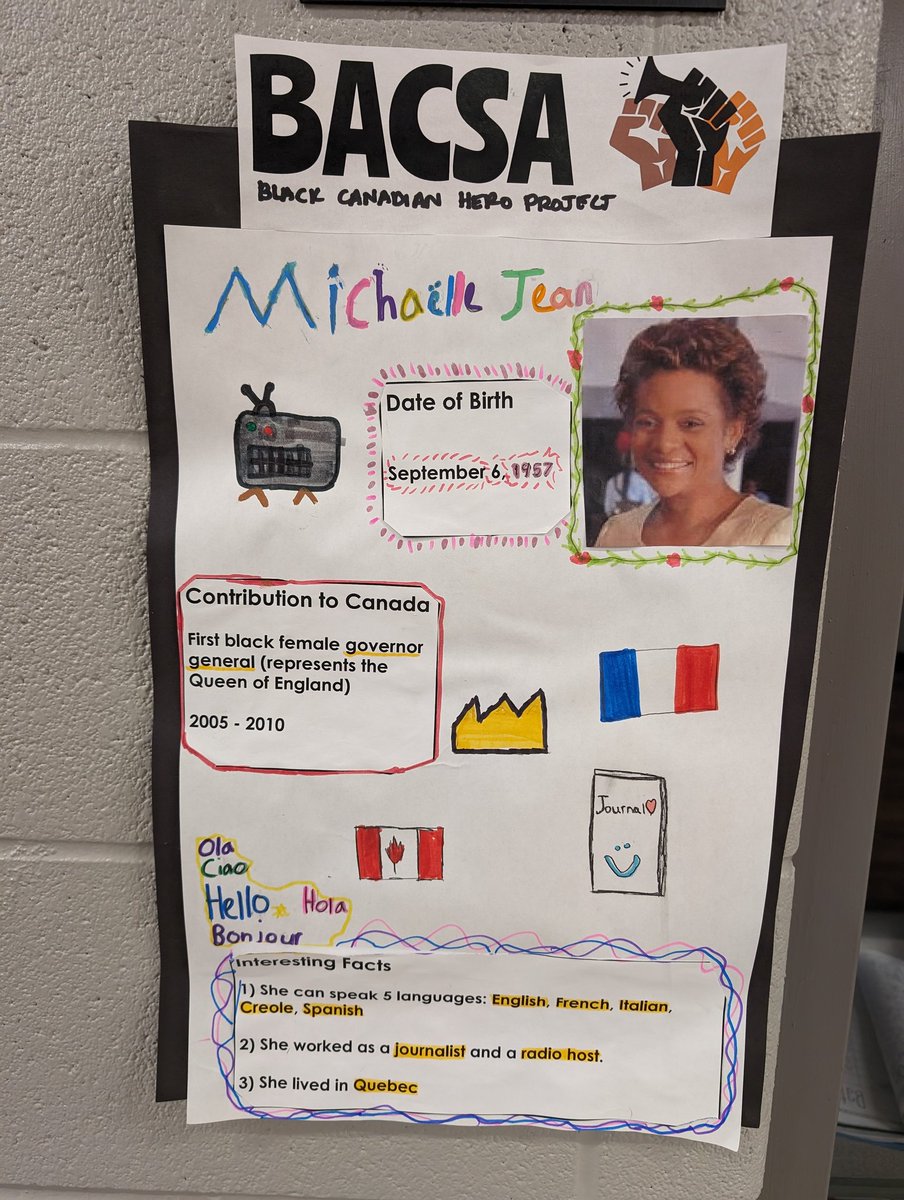 BACSA
BLACK CANADIAN HERO PROJECT
Michaëlle Jean
Date of Birth
September 6, 1957
Contribution to Canada
First black female governor
general (represents the
Queen of England)
2005 - 2010
Journal
Ola
Ciao
Hello Hola
Bonjour
Interesting Facts
1) She can speak 5 languages: English, French, Italian,
Creole, Spanish
2) She worked as a journalist and a radio host.
3) She lived in Quebec